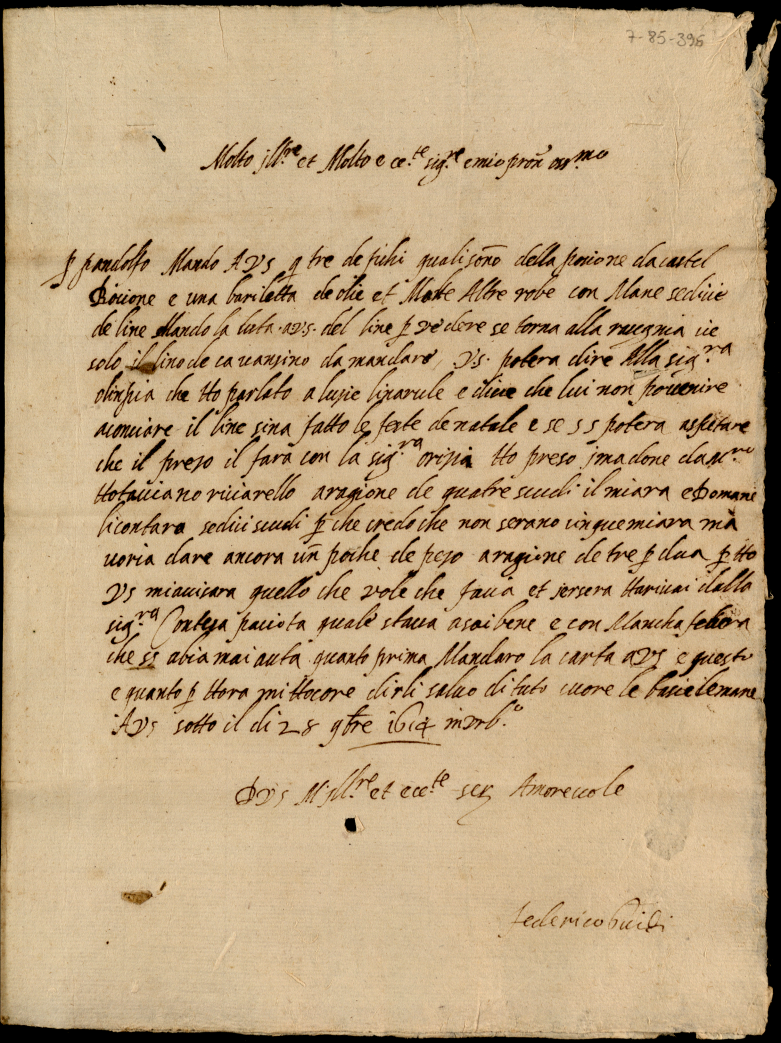 7-85-396
Molto Ill.re et Molto ecce.te sig.re e mio pron oss.mo
P pandolfo Mando A VS q tre de fichi quali sono della porione da castel
e una bariletta de olie et Molte Altre robe con Mane sedici
de line Mando la luta a vs. del line p vedere se torna alla
solo il lino de ca da mandare, V.S. potera dire Alla sig.ra
olinpia che tto parlato a e dice che lui non po venire
aconciare il line sina fatto le feste de natale e se S S potera aspetare
che il preso il fara con la sig.ra tto preso da
ttotaviano riciarello aragione de quatre scudi il miara e Domane
li contara sedici scudi p che credo che non serano cinque miara ma
voria dare ancora un poche de pegio aragione de tre p dua p tto
VS mi avisara quello che vole che facia et iersera ttarivai dalla
sig.ra Contessa paciota quale stava asai bene e con Mancha febera
che ss abia mai auta quanto prima Mandaro la carta a VS e questo
e quanto p ttora mi ttocore dirli salvo di tuto cuore le bascie le mane
A VS sotto il di 28 9bre 1614 in Urb.o
D VS M Ill.re et ecce.te ser Amorevole
federico Guidi